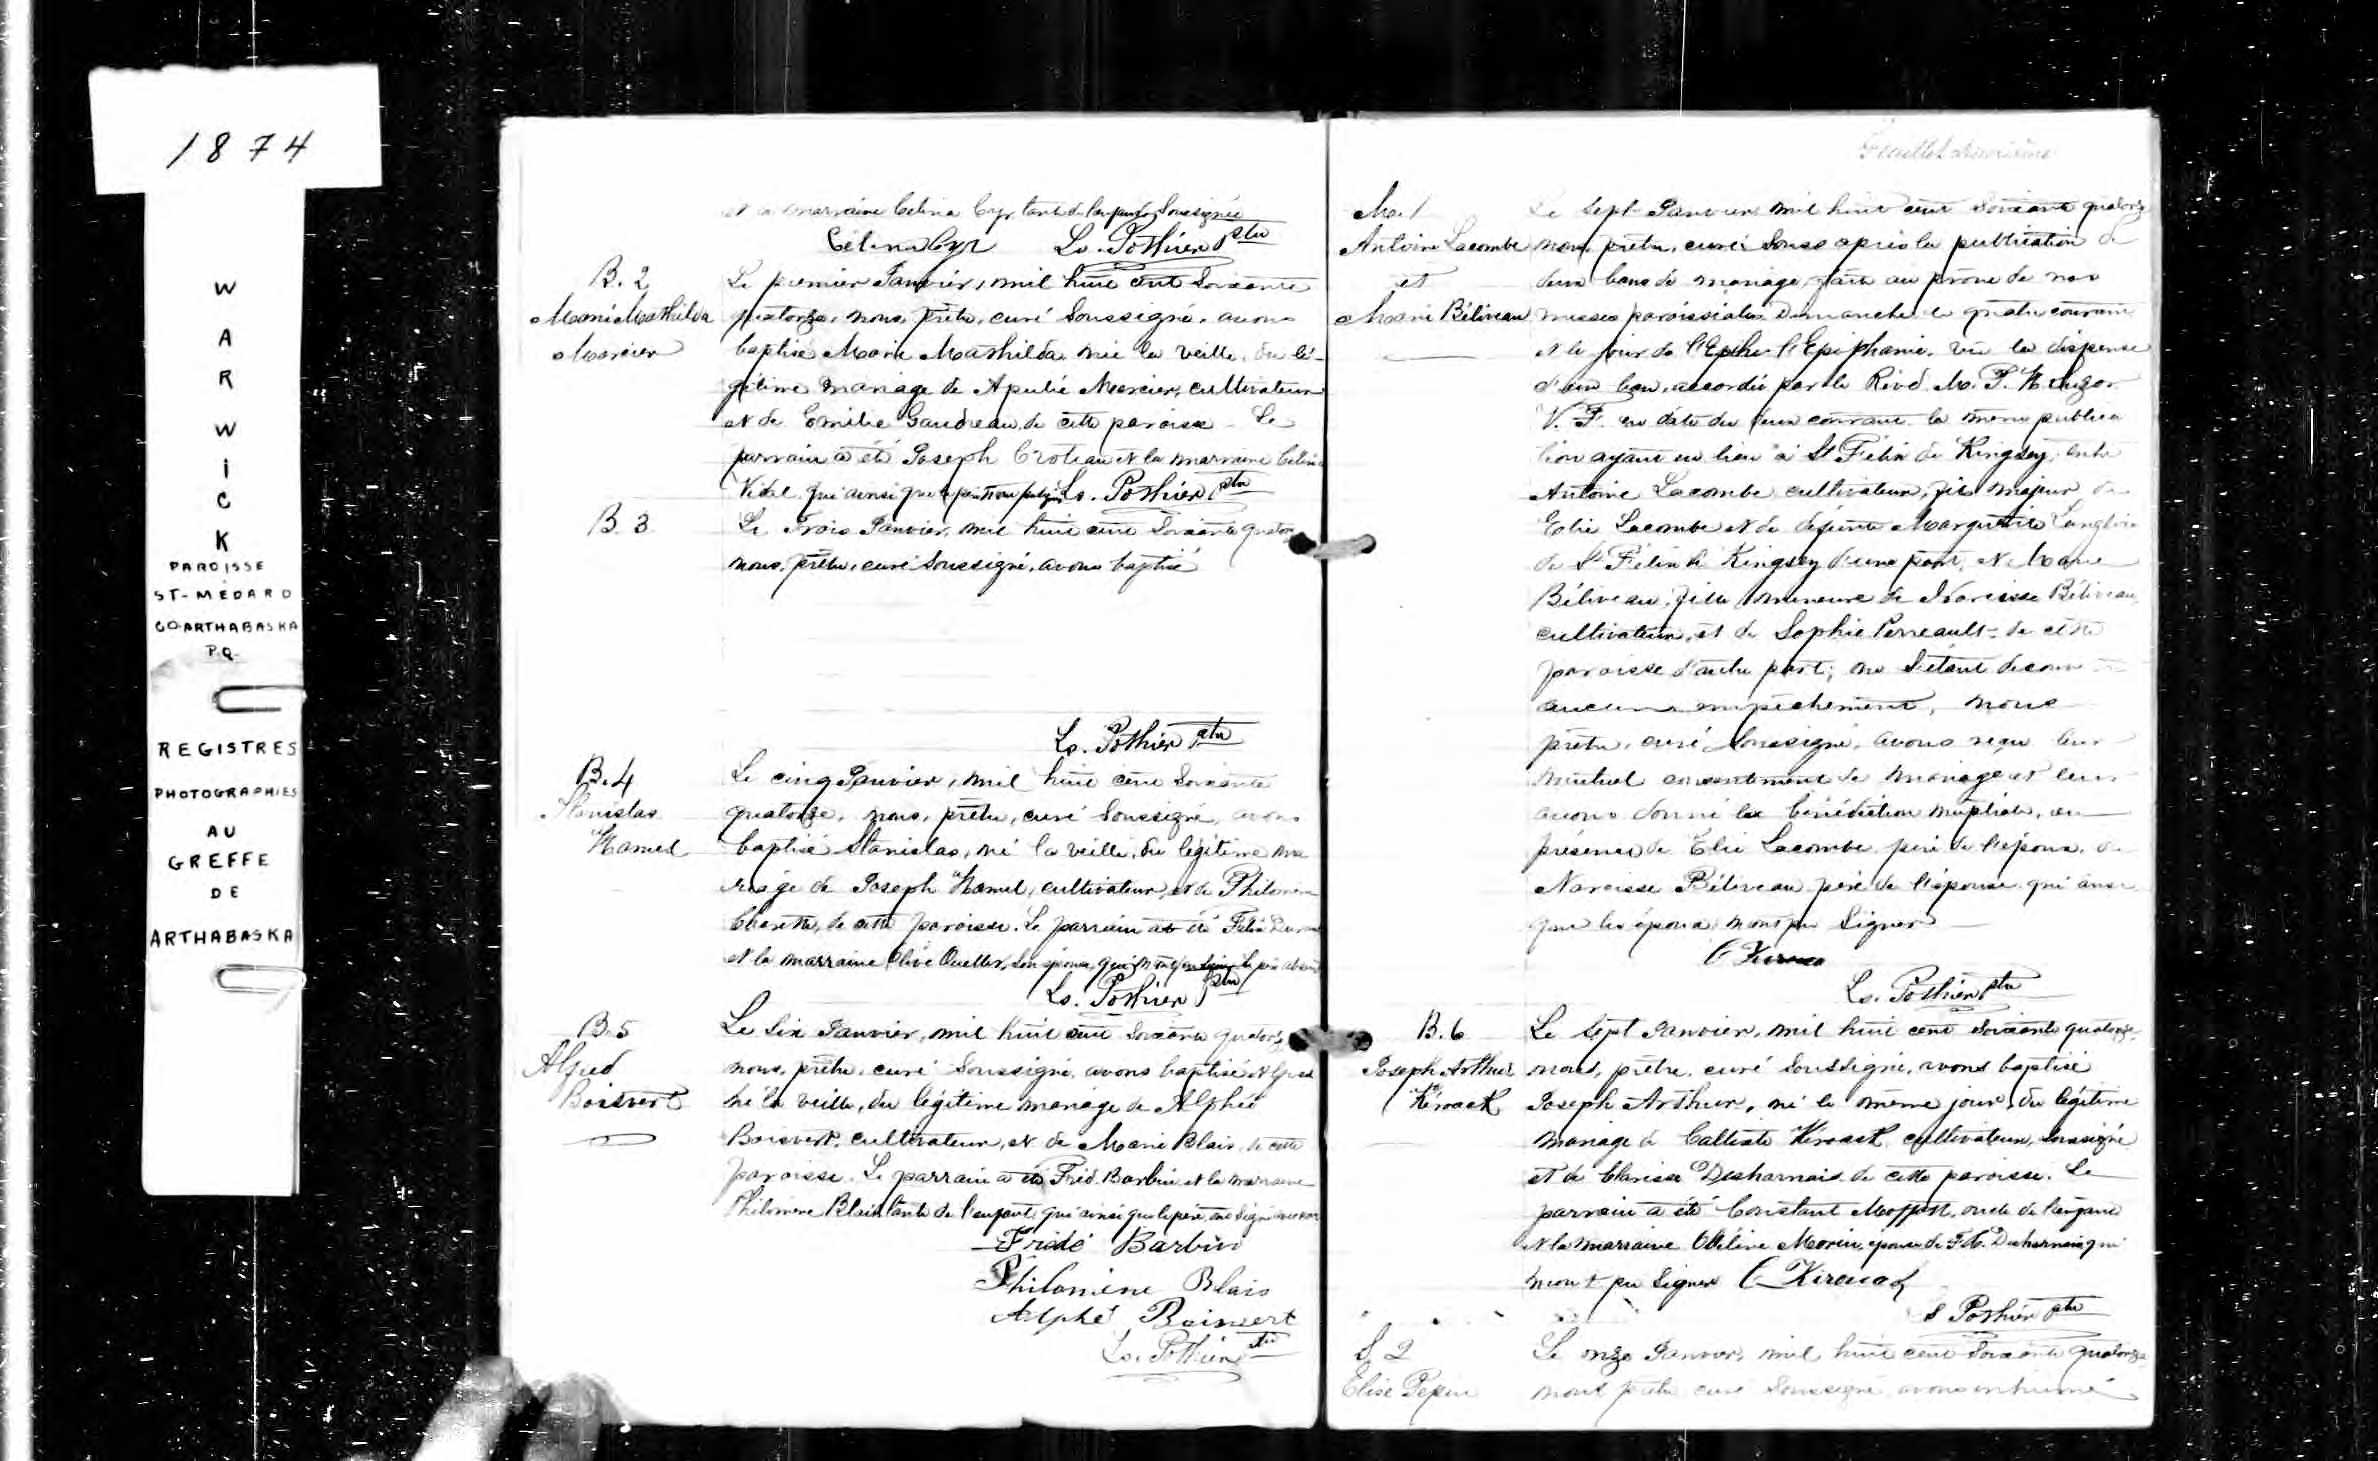 1874
WARWICK
PAROISSE
ST-MÉDARD
CO-ARTHABASKA
P.Q.
REGISTRES
PHOTOGRAPHIES
AU
GREFFE
DE
ARTHABASKA
et la marraine Celina Cyr, tante de l'enfant, Soussignée
Célina Cyr Ls. Pothier Ptre
B. 2
Marie Mathilda
Mercier
Le premier Janvier, mil huit cent Soixante
quatorze, nous, prêtre, curé Soussigné, avons
baptisé Marie Mathilda née la veille, du lé-
gitime mariage de Mercier, cultivateur
et de Emilie Gaudreau, de cette paroisse. Le
parrain a été Joseph Croteau et la marraine Celina
Vidal qui ainsi que le père n'ont pu signer Ls. Pothier Ptre
B. 3
Le Trois Janvier, mil huit cent Soixante quatorze
nous, prêtre, curé Soussigné, avons baptisé
Ls. Pothier Ptre
B. 4
Stanislas
Hamel
Le cinq Janvier, mil huit cent Soixante
quatorze, nous, prêtre, curé Soussigné, avons
baptisé Stanislas, né la veille, du légitime ma
riage de Joseph Hamel, cultivateur, et de Philomène
de cette paroisse. Le parrain a été Félix
et la marraine Olive Ouellet, son épouse, qui n'ont pu signer le père absent
Ls. Pothier Ptre
B. 5
Alfred
Boisvert
Le Six Janvier, mil huit cent Soixante quatorze
nous, prêtre, curé Soussigné, avons baptisé Alfred
né la veille, du légitime mariage de Alphée
Boisvert, cultivateur, et de Marie Blais, de cette
paroisse. Le parrain a été Fréd. Barbin et la marraine
Philomène Blais tante de l'enfant, qui ainsi que le père, ont signé avec nous
Frédé Barbin
Philomène Blais
Alphé Boisvert
Ls. Pothier Ptre
Feuillet deuxième
M. 1
Antoine Lacombe
et
Marie Béliveau
Le Sept Janvier mil huit cent Soixante quatorze
nous, prêtre, curé Souss après la publication de
deux bans de mariage, faite au prône de nos
messes paroissiales Dimanche le quatre courant
et le jour de l'Epihe l'Epiphanie, vu la dispense
d'un ban, accordée par le Révd. M. P. H. Suzor
V. F. en date du deux courant la même publica
tion ayant eu lieu à St Félix de Kingsey, entre
Antoine Lacombe cultivateur, fils majeur de
Elie Lacombe et de défunte Marguerite Langlois
de St Félix de Kingsey d'une part, et Marie
Béliveau, fille mineure de Narcisse Béliveau,
cultivateur, et de Sophie Perreault, de cette
paroisse d'autre part; ne s'étant découvert
aucun empêchement, nous
prêtre, curé Soussigné, avons reçu leur
mutuel consentement de mariage et leur
avons donné la bénédiction nuptiale, en
présence de Elie Lacombe père de l'époux, de
Narcisse Béliveau père de l'épouse qui ainsi
que les époux n'ont pu Signer
Ls. Pothier Ptre
B. 6
Joseph Arthur
Kéroack
Le Sept Janvier, mil huit cent Soixante quatorze,
nous, prêtre, curé Soussigné, avons baptisé
Joseph Arthur, né le même jour, du légitime
mariage de Callixte Kéroack, cultivateur, Soussigné
et de Clarisse Desharnais de cette paroisse. Le
parrain a été Constant Moffatt, oncle de l'enfant
et la marraine Odéline Morin, épouse de F. X. Desharnais qui
n'ont pu Signer C Kirouack
Ls Pothier Ptre
S. 2
Elise Pepin
Le onze Janvier, mil huit cent Soixante quatorze
nous prêtre curé Soussigné avons inhumé